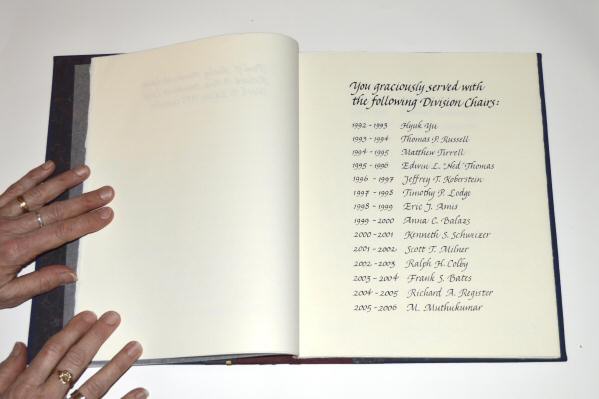 You graciously served with
the following Division Chairs:
1992-1993 Hyuk Yu
1993-1994 Thomas P. Russell
1994-1995 Matthew Tirrell
1995-1996 Edwin L. "Ned" Thomas
1996-1997 Jeffrey T. Koberstein
1997-1998 Timothy P. Lodge
1998-1999 Eric J. Amis
1999-2000 Anna C. Balazs
2000-2001 Kenneth S. Schweizer
2001-2002 Scott T. Milner
2002-2003 Ralph H. Colby
2003-2004 Frank S. Bates
2004-2005 Richard A. Register
2005-2006 M. Muthukumar